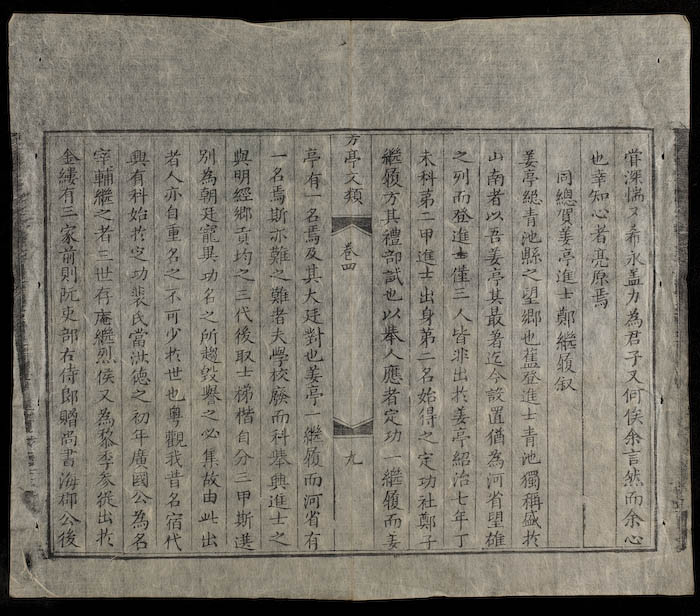 嘗深惴又希永盖力為君子又何俟余言然而余心
也幸知心者亮原焉
同總賀姜亭進士鄭繼履叙
姜亭總青池縣之望鄉也舊登進士青池獨稱盛於
山南者以吾姜亭其最著迄今設置猶為河省望雄
之列而登進士僅三人皆非出於姜亭紹治七年丁
未科第二甲進士出身第二名始得之定功社鄭子
繼履方其禮部試也以舉人應者定功一繼履而姜
方亭文類 卷四 九
亭有一名焉及其大廷對也姜亭一繼履而河省有
一名焉斯亦難之難者夫學校廢而科舉興進士之
與明經鄉貢均之三代後取士梯楷自分三甲斯選
別為朝廷寵異功名之所趨毀譽之必集故由此出
者人亦自重名之不可少於世也粵觀我昔名宿代
興有科始於定功裴氏當洪德之初年廣國公為名
宰輔繼之者三世存庵繼烈侯又為黎季參從出於
金縷有三家前則阮吏部右侍郎贈尚書海郡公後